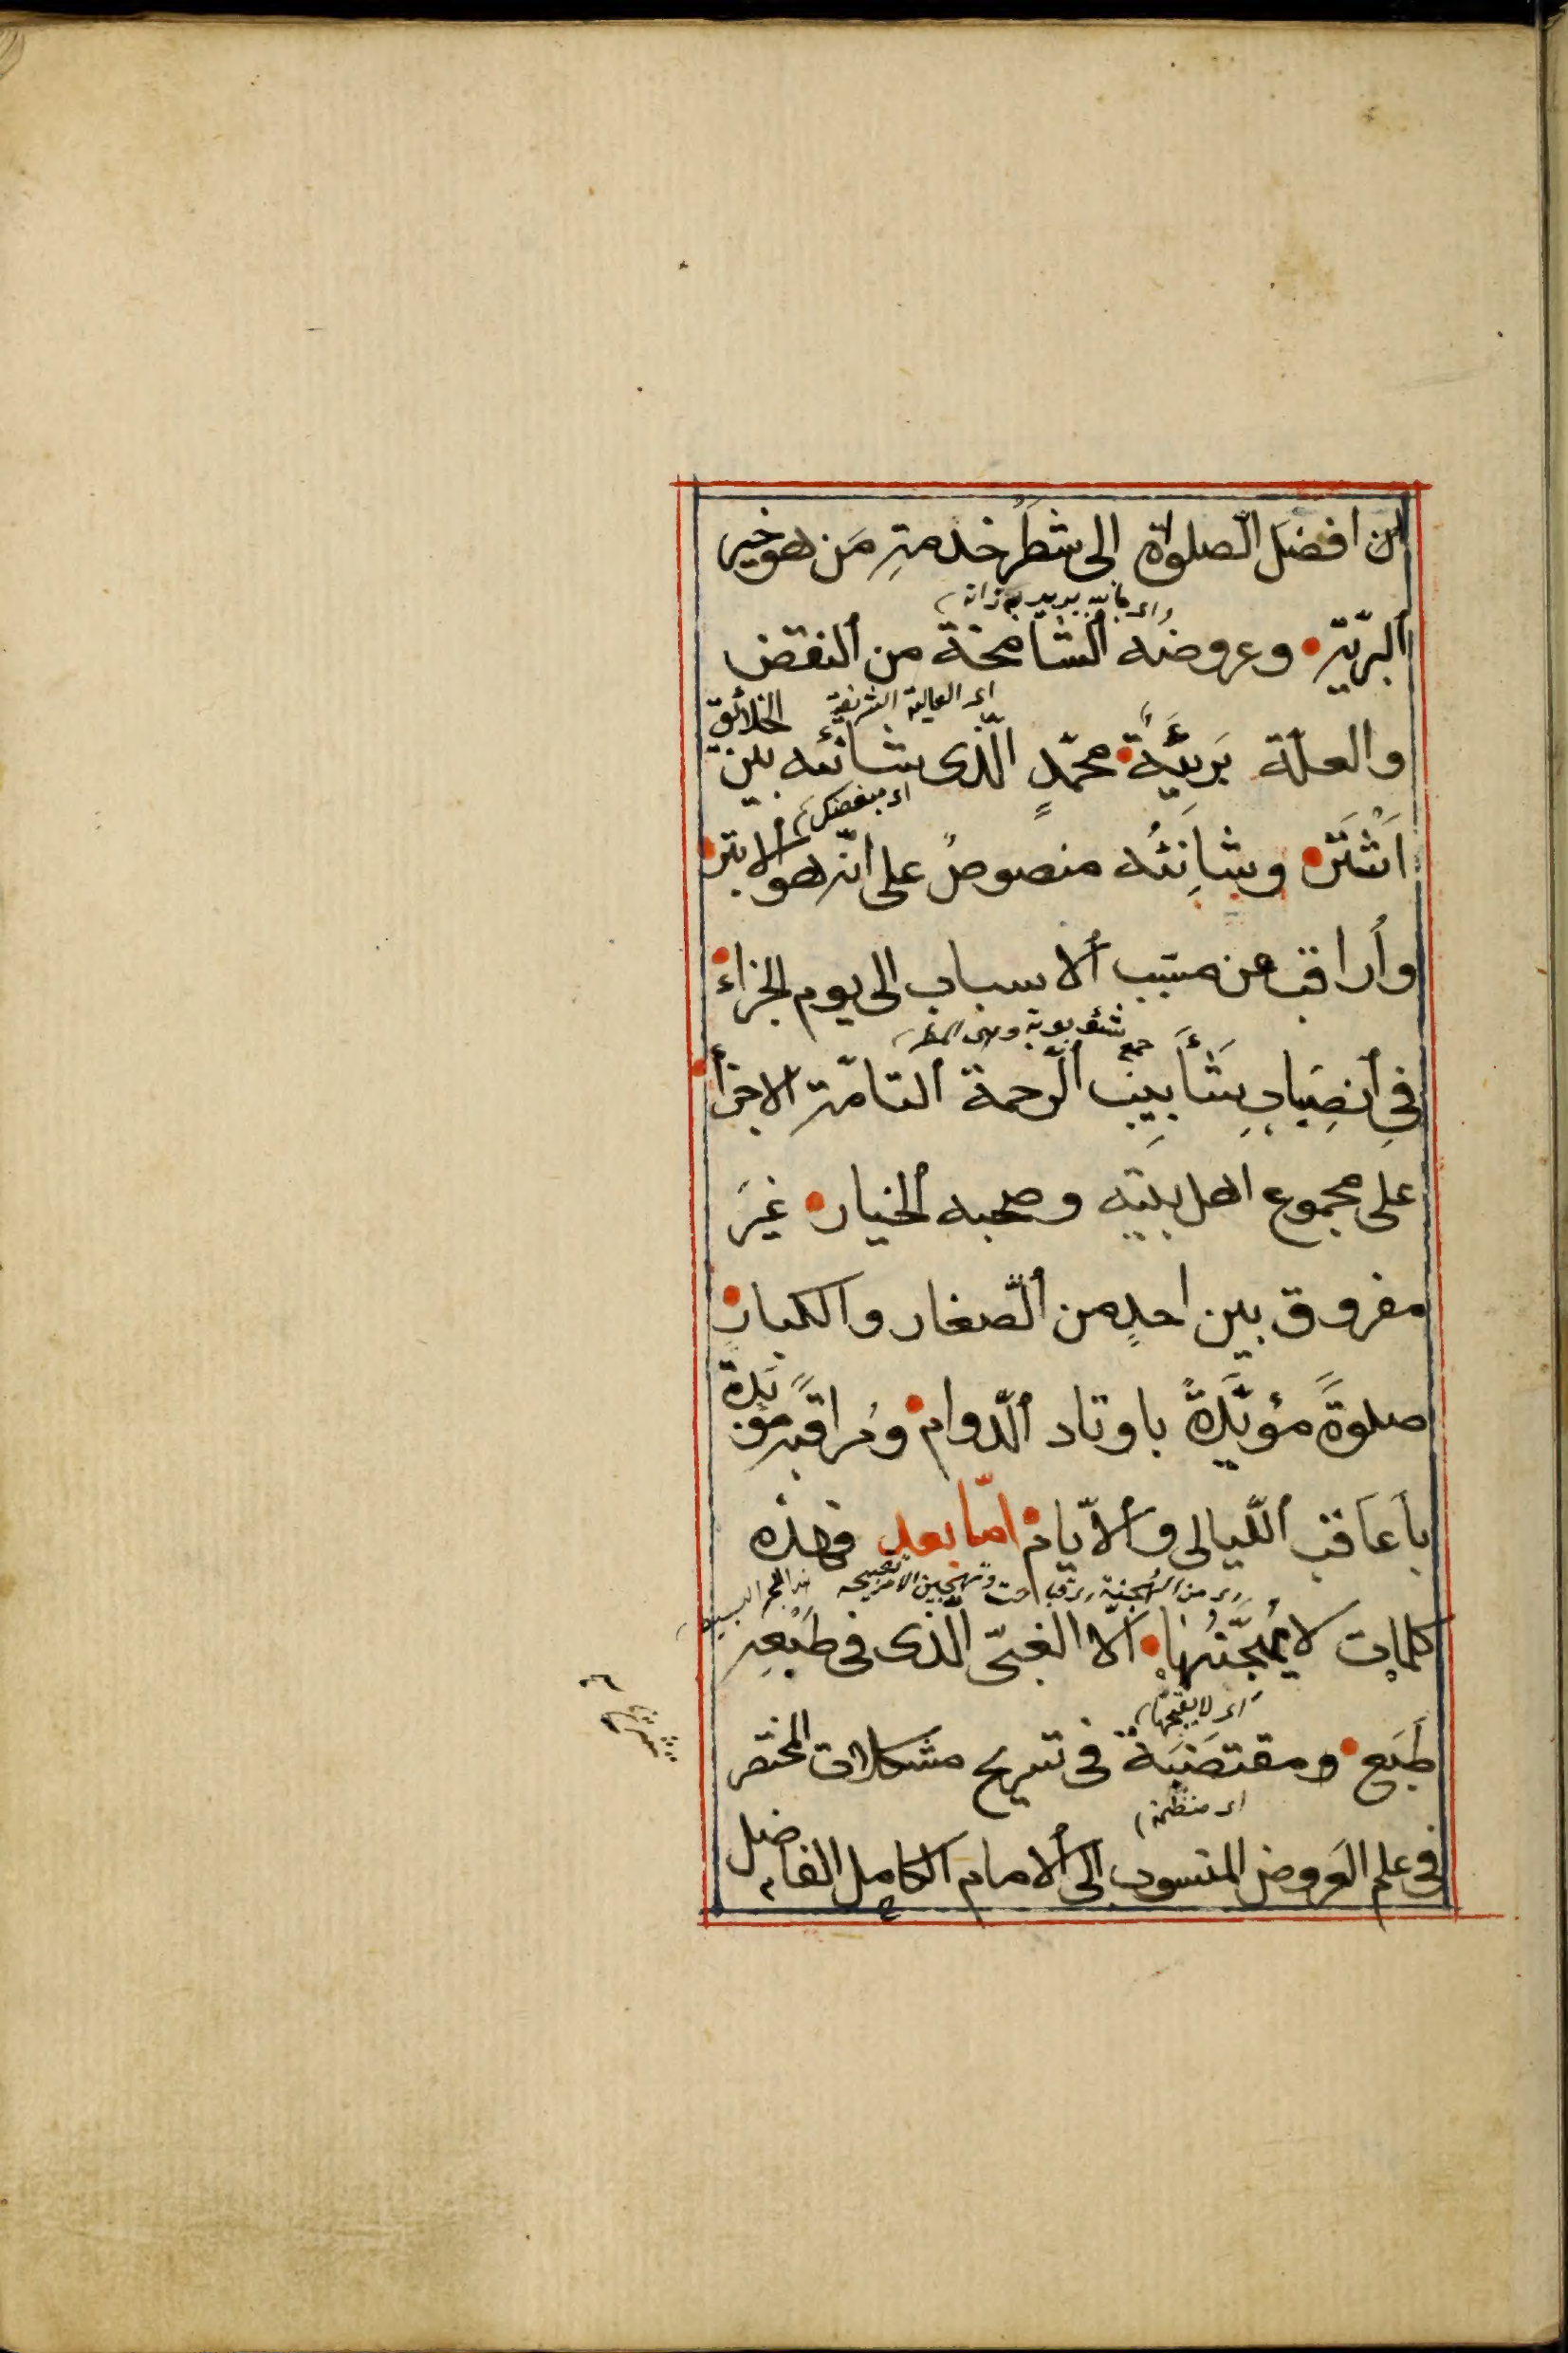 ان افضل الصّلواة الى شطرُ خدمةِ مَن هو خير
البرّيّة وعروضُه الشامخة من النقض
اى العالية الشريفة
والعلّة بَريئَةٌ محمّدٍ الّذى شانئه بين الخلائق
اى مبغضك
اَبْتَر وشانِئُه منصوصٌ على انّه هو الابتر
واُراقب من مسبّب الاسباب الى يوم الجزاء
جمع شئوبوبة وهى المطر
فى انصِبابِ شَأَبِيبِ الرّحمة التامّة الاجزاء
على مجموع اهل بيته وصحبه الخيار غيرَ
مفروق بين احدٍ من الصّغار والكبار
صلوةً مؤبّدةً باوتاد الدّوام ومُراقبةً مؤبدة
باعاقب اللّيالى والايّام امّا بعد فهذه
كلمات لا يُهَجِّنُها الّا الغبىّ الّذى فى طَبْعِه
اى لا يقبحها
طَبَع ومقتضَبَة فى تسريح مشكلات المختصر
اى منظمة
فى علم العَروض المنسوب الى الامام الكامل الفاضل